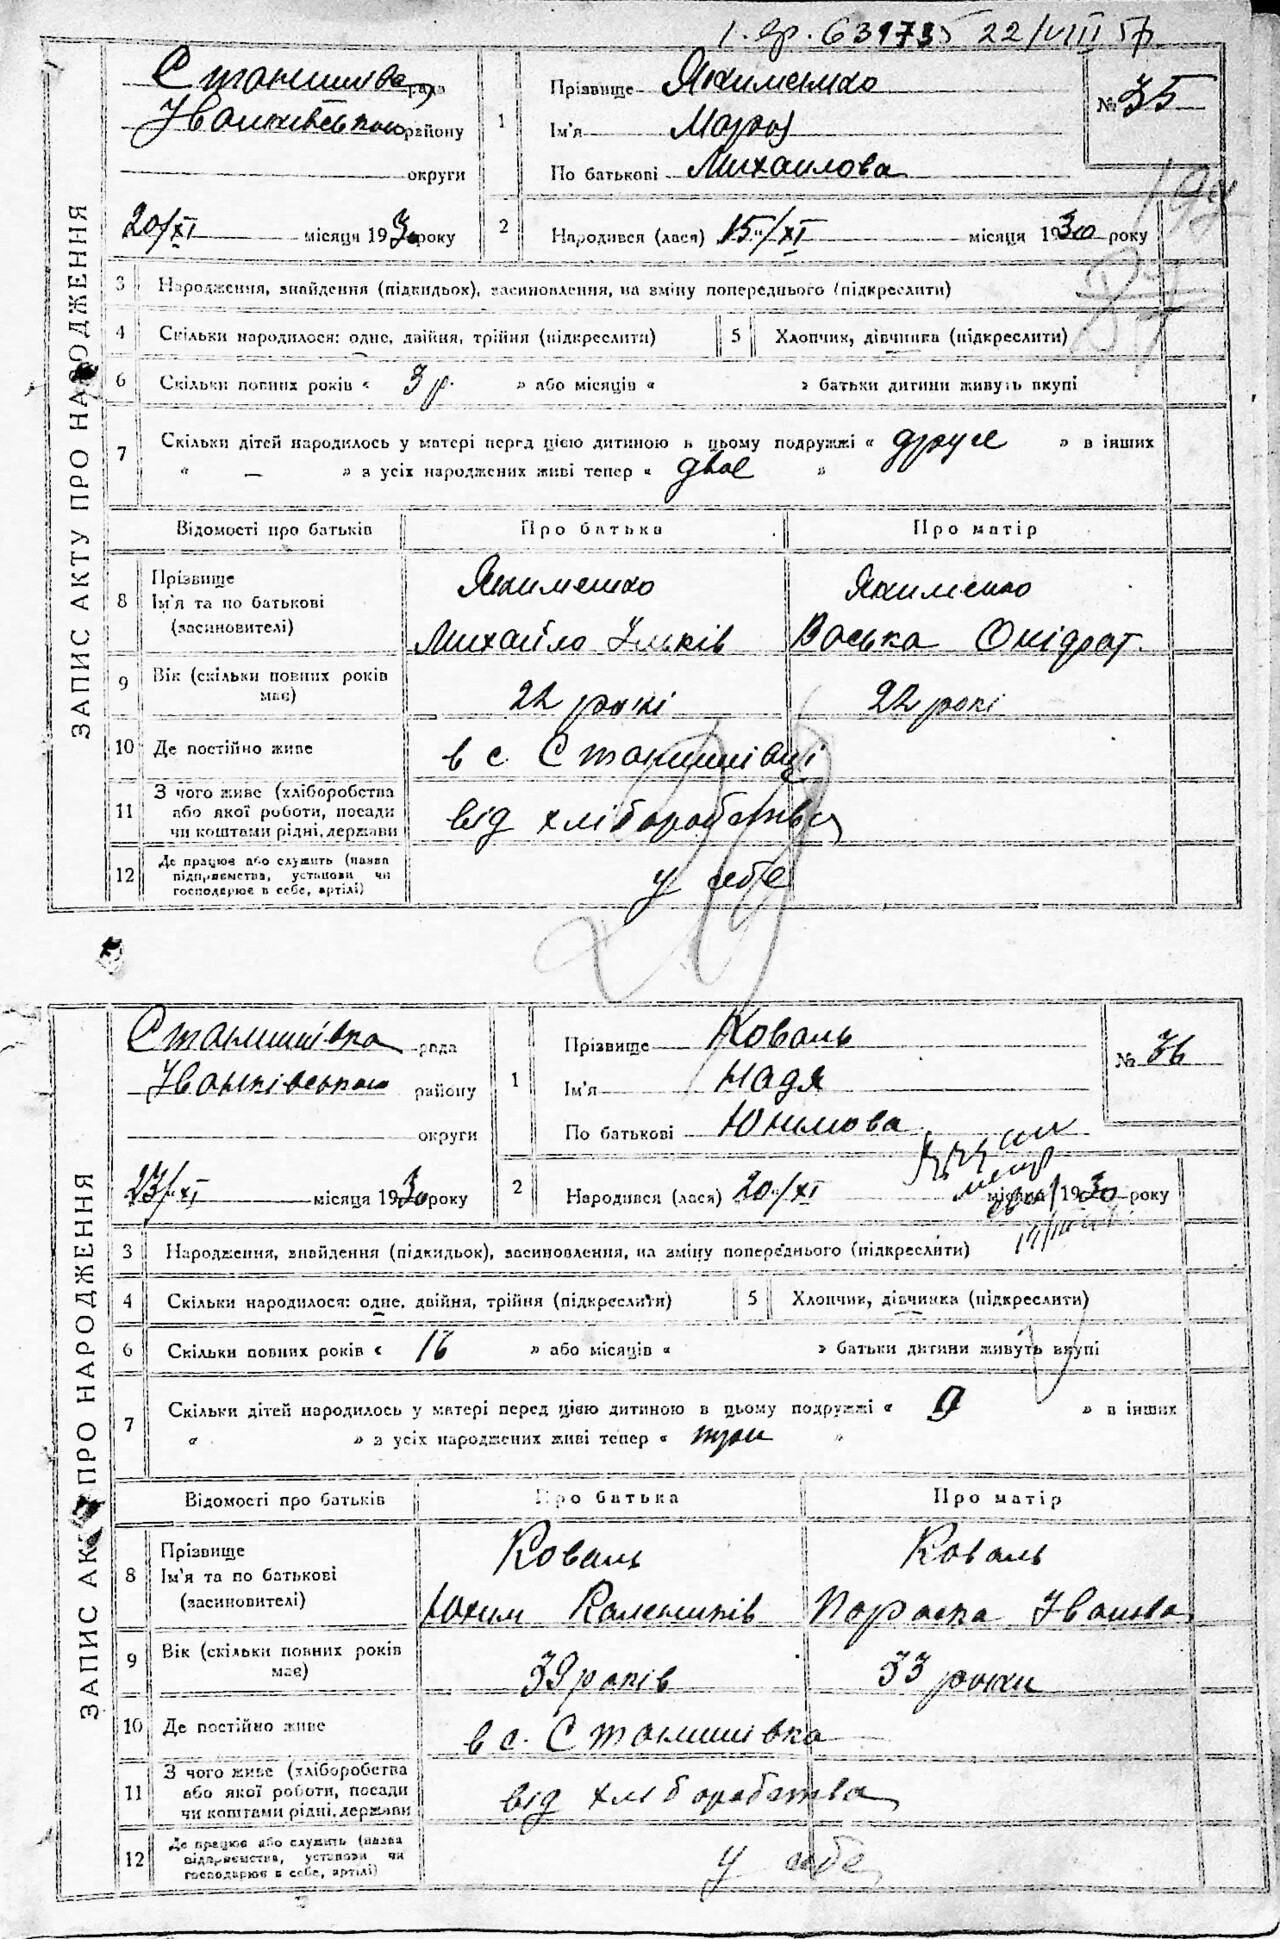 63973 22/VIII
Станишівська рада
Іванківського району
округи
20/XI місяця 1930 року
1
Прізвище Якименко
Ім'я
По батькові Михайлова
№ 35
2
Народився (лася) 15/XI місяця 1930 року
ЗАПИС АКТУ ПРО НАРОДЖЕННЯ
3 Народження, знайдення (підкидьок), засиновлення, на зміну попереднього (підкреслити)
4 Скільки народилося: одне, двійня, трійня (підкреслити)
5 Хлопчик, дівчинка (підкреслити)
6 Скільки повних років « 3 р. » або місяців « » батьки дитини живуть вкупі
7 Скільки дітей народилось у матері перед цією дитиною в цьому подружжі « друге » в інших
« — » з усіх народжених живі тепер « двоє »
Відомості про батьків Про батька Про матір
8 Прізвище Ім'я та по батькові (засиновителі)
Якименко Якименко
Михайло Ільків Васька
9 Вік (скільки повних років має)
22 рокі 22 рокі
10 Де постійно живе
в с. Станишівці
11 З чого живе (хліборобства або якої роботи, посади чи коштами рідні, держави
від хліборобства
12 Де працює або служить (назва підприємства, установи чи господарює в себе, артілі)
у себе
Станишівка рада
Іванківського району
округи
23/XI місяця 1930 року
1
Прізвище Коваль
Ім'я Надя
По батькові Юхимова
№ 36
2
Народився (лася) 20/XI місяця 1930 року
ЗАПИС АКТУ ПРО НАРОДЖЕННЯ
3 Народження, знайдення (підкидьок), засиновлення, на зміну попереднього (підкреслити)
4 Скільки народилося: одне, двійня, трійня (підкреслити)
5 Хлопчик, дівчинка (підкреслити)
6 Скільки повних років « 16 » або місяців « » батьки дитини живуть вкупі
7 Скільки дітей народилось у матері перед цією дитиною в цьому подружжі « » в інших
« » з усіх народжених живі тепер « три »
Відомості про батьків Про батька Про матір
8 Прізвище Ім'я та по батькові (засиновителі)
Коваль Коваль
Юхим Калеників Параска Іванова
9 Вік (скільки повних років має)
39 років 33 роки
10 Де постійно живе
в с. Станишівка
11 З чого живе (хліборобства або якої роботи, посади чи коштами рідні, держави
від хліборобства
12 Де працює або служить (назва підприємства, установи чи господарює в себе, артілі)
у себе